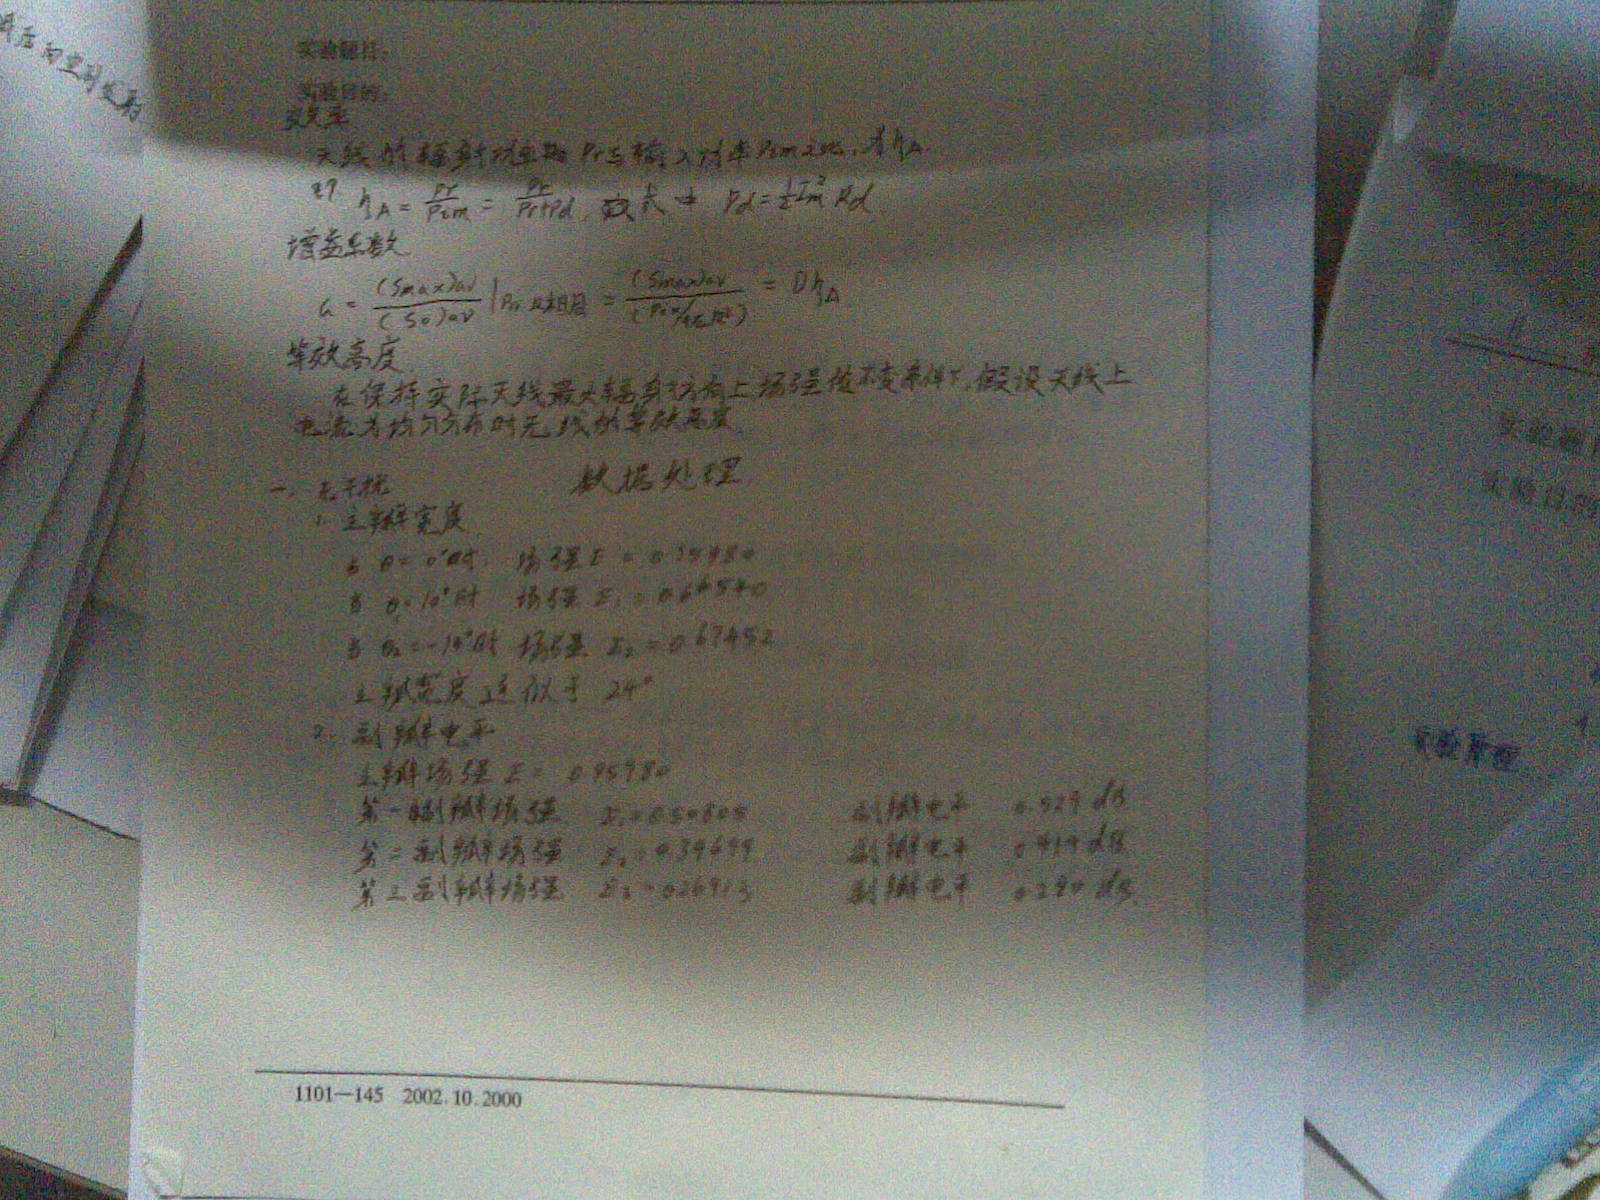 实验题目:
实验目的:
效率
天线的辐射功率 Pr与输入功率Pim之比, 为ηA.
ηA = Pr/Pim = Pr/(Pr+Pd), 式中 Pd = ½Im²Rd
增益系数
G = (Smax)av/(S0)av |Pin 相同 = (Smax)av/(Pin/4πR²) = DηA
等效高度
在保持实际天线最大辐射方向上场强值不变条件下, 假设天线上
电流为均匀分布时天线的等效高度.
数据处理
一. 无干扰
1. 主瓣宽度
当 θ = 0°时 场强E = 0.95980
当 θ1 = 10°时 场强 E1 = 0.66540
时 场强 E2 = 0.67452
主瓣宽度近似于 24°
2. 副瓣电平
主瓣场强 E = 0.95980
第一副瓣场强 E1 = 0.50805 副瓣电平 0.529 dB
第二副瓣场强 副瓣电平 0.414 dB
第三副瓣场强 E3 = 0.26913 副瓣电平 0.280 dB
1101—145 2002.10.2000
实验题目
实验目的
实验原理